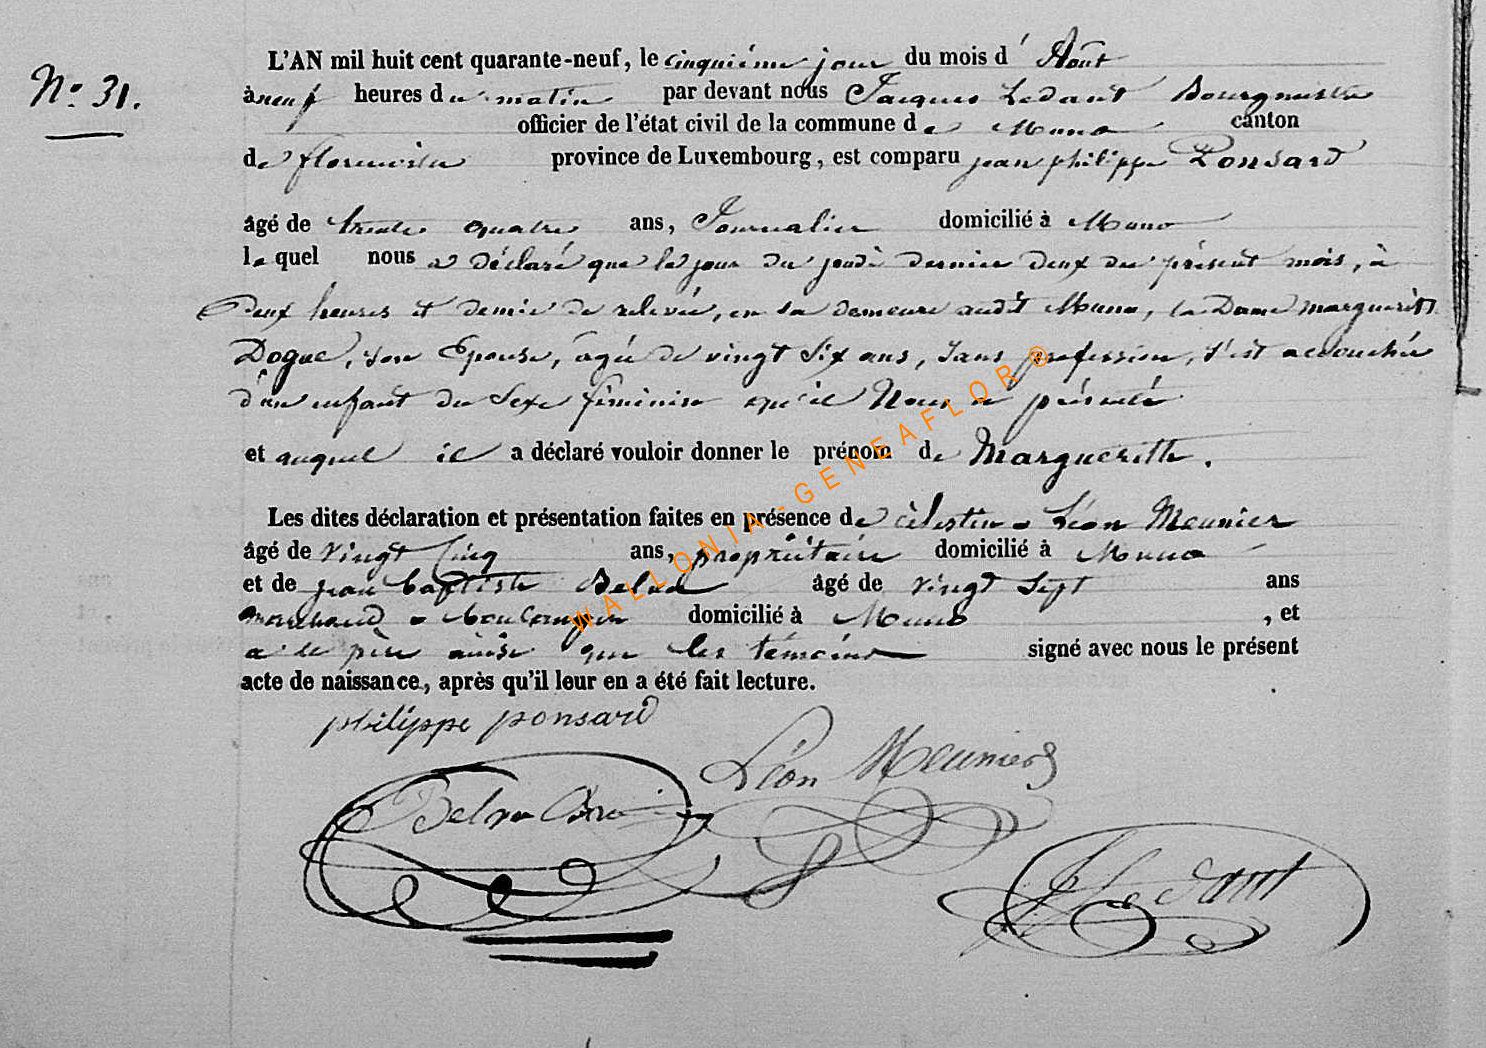 N° 31.
L'AN mil huit cent quarante-neuf, le cinquième jour du mois d' Août
à neuf heures du matin par devant nous Jacques Ledant Bourgmestre
officier de l'état civil de la commune de Muno canton
de florenville province de Luxembourg, est comparu jean philippe Ponsard
âgé de trente quatre ans, Journalier domicilié à Muno
le quel nous a déclaré que le jour du jeudi dernier deux du présent mois, à
Deux heures et demie de relevée, en sa demeure audit Muno, la Dame marguerite
Dogue, son Epouse, agée de vingt six ans, sans profession, s'est accouchée
d'un enfant du Sexe féminin qu'il Nous a présenté
et auquel il a déclaré vouloir donner le prénom de Margueritte.
Les dites déclaration et présentation faites en présence de célestin - Léon Meunier
âgé de vingt Cinq ans, propriétaire domicilié à Muno
et de jean baptiste Belva âgé de vingt Sept ans
marchand - boulanger domicilié à Muno , et
a le père ainsi que les témoins signé avec nous le présent
acte de naissance, après qu'il leur en a été fait lecture.
philippe ponsard
Léon Meunier
Belva
J Ledant
WALLONIA-GENEAFLOR®